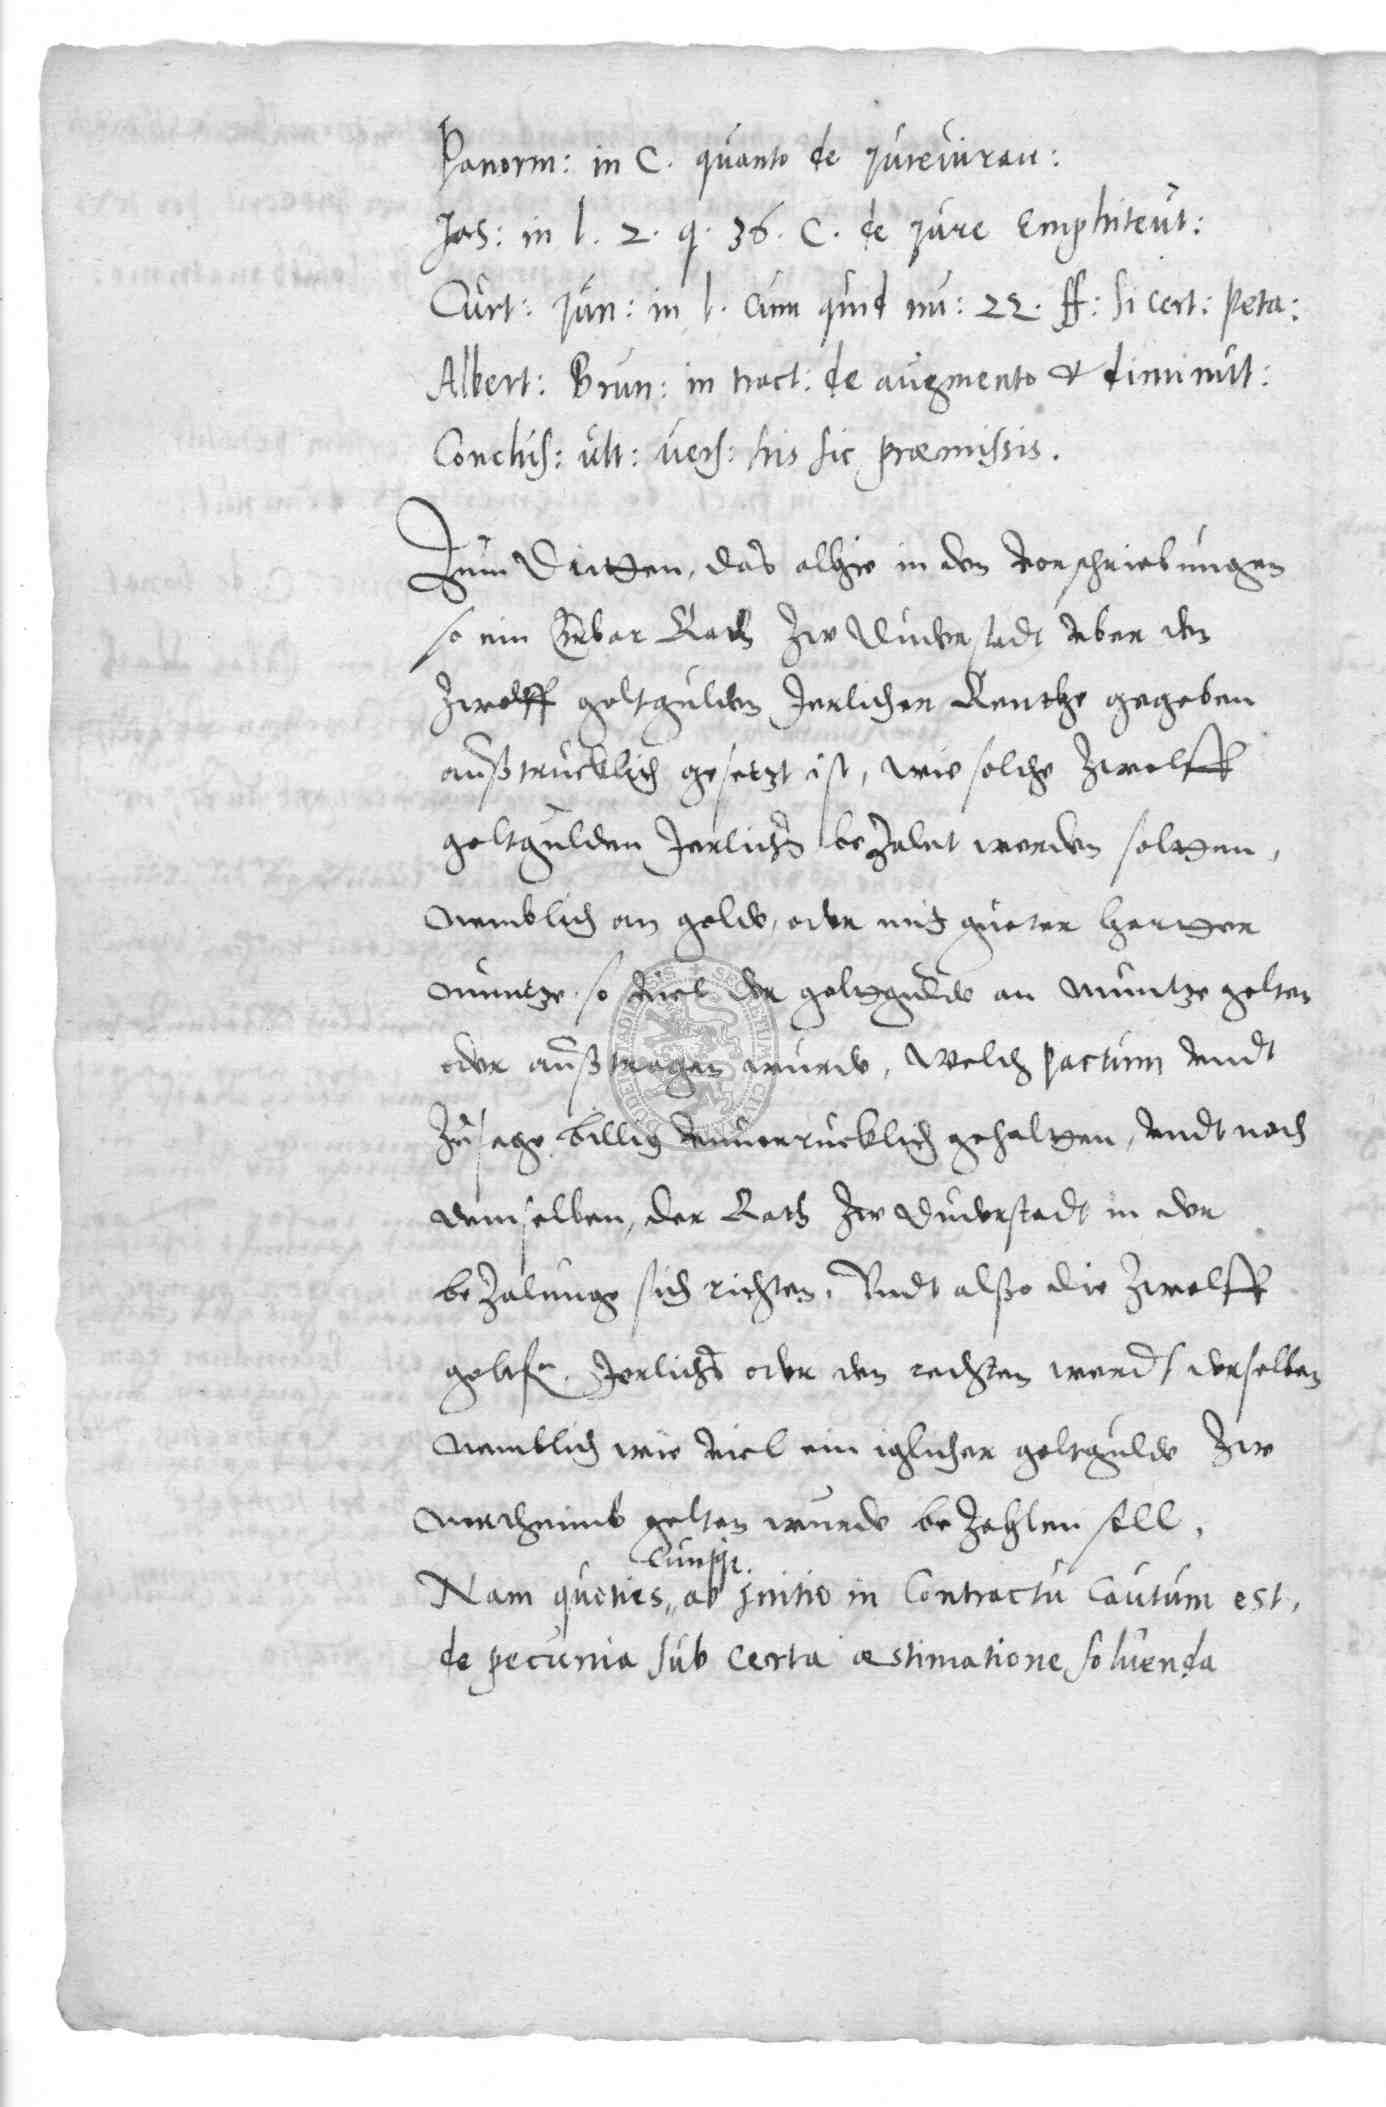 Panorm: in C. quanto de jureiuran:
Jas: in l. 2. q. 36. C. de jure Emphiteut:
Curt: jun: in l. cum quid nu: 22. ff: si cert: peta:
Albert: Brun: in tract: de augmento & diminut:
Conclus: ult: vers: his sic præmissis.
Zum Dritten, das alhie in den vorschriebungen
so ein Erbar Rath zw Duderstadt vber den
zwelff goltgulden Jerlicher Renthe gegeben
außtrucklich gesetzt ist, wie solche zwelff
goltgulden Jerlichs bezalet werden soltten,
nemblich an golde, oder mit gueter hartter
muntze so viel der goltgulde an muntze gelten
oder außtragen wurde, Welch pactum vndt
zusage billig vnuerrucklich gehaltten, vndt nach
demselben, der Rath zw Duderstadt in der
bezalunge sich richten, Vndt alßo die zwelff
goltfl. Jerlichs oder den rechten werdt derselben
nemblich wie viel ein iglicher goltgulde zw
gelten wurde bezahlen soll,
Nam quoties ab jnitio in Contractu Cautum est,
de pecunia sub certa æstimatione soluenda